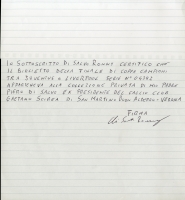 IO SOTTOSCRITTO DI SALVO RONNY CERTIFICO CHE
IL BIGLIETTO DELLA FINALE DI COPPA CAMPIONI
TRA JUVENTUS E LIVERPOOL SERIE N°
APPARTENEVA ALLA COLLEZIONE PRIVATA DI MIO PADRE
PIERO DI SALVO EX PRESIDENTE DEL CALCIO CLUB
GAETANO SCIREA DI SAN MARTINO BUON ALBERGO - VERONA
FIRMA